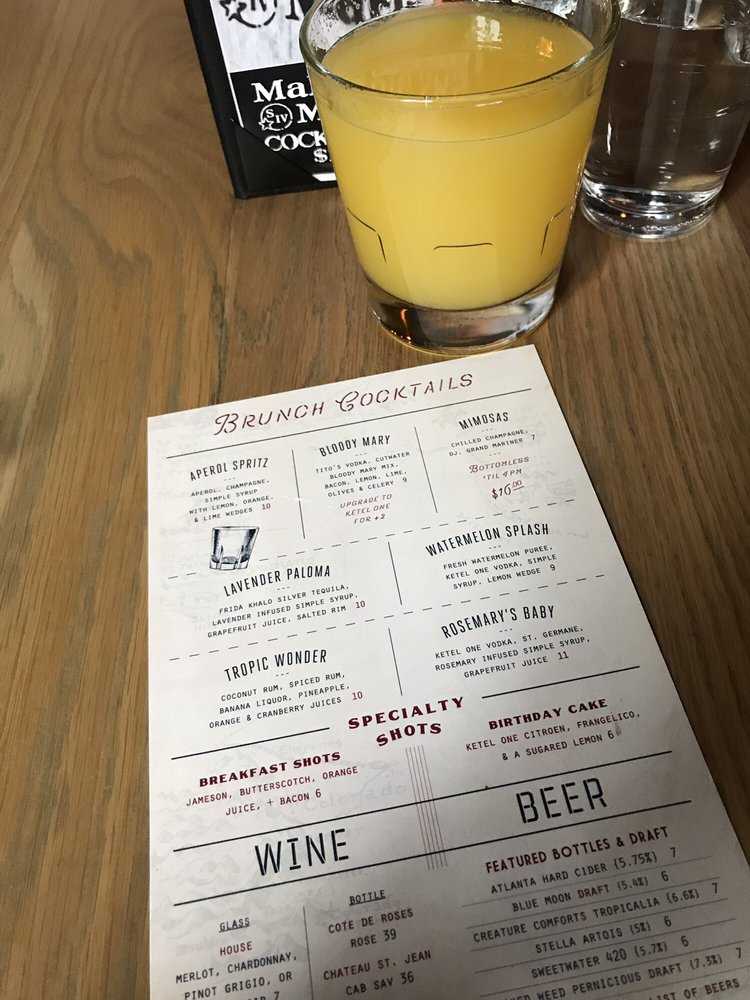 SIV
$
BRUNCH COCKTAILS
APEROL SPRITZ
APEROL, CHAMPAGNE,
SIMPLE SYRUP
WITH LEMON, ORANGE,
& LIME WEDGES 10
BLOODY MARY
TITO'S VODKA, CUTWATER
BLOODY MARY MIX,
BACON, LEMON, LIME,
OLIVES & CELERY 9
UPGRADE TO
KETEL ONE
FOR +2
MIMOSAS
CHILLED CHAMPAGNE,
OJ, GRAND MARINER 7
BOTTOMLESS
'TIL 4 PM
$16.00
LAVENDER PALOMA
FRIDA KHALO SILVER TEQUILA,
LAVENDER INFUSED SIMPLE SYRUP,
GRAPEFRUIT JUICE, SALTED RIM 10
WATERMELON SPLASH
FRESH WATERMELON PUREE,
KETEL ONE VODKA, SIMPLE
SYRUP, LEMON WEDGE 9
TROPIC WONDER
COCONUT RUM, SPICED RUM,
BANANA LIQUOR, PINEAPPLE,
ORANGE & CRANBERRY JUICES 10
ROSEMARY'S BABY
KETEL ONE VODKA, ST. GERMANE,
ROSEMARY INFUSED SIMPLE SYRUP,
GRAPEFRUIT JUICE 11
SPECIALTY
SHOTS
BREAKFAST SHOTS
JAMESON, BUTTERSCOTCH, ORANGE
JUICE, + BACON 6
BIRTHDAY CAKE
KETEL ONE CITROEN, FRANGELICO,
& A SUGARED LEMON 6
WINE
GLASS
HOUSE
MERLOT, CHARDONNAY,
PINOT GRIGIO, OR
7
BOTTLE
COTE DE ROSES
ROSE 39
CHATEAU ST. JEAN
CAB SAV 36
BEER
FEATURED BOTTLES & DRAFT
ATLANTA HARD CIDER (5.75%) 7
BLUE MOON DRAFT (5.4%) 6
CREATURE COMFORTS TROPICALIA (6.6%) 7
STELLA ARTOIS (5%) 6
SWEETWATER 420 (5.7%) 6
WEED PERNICIOUS DRAFT (7.3%) 7
LIST OF BEERS